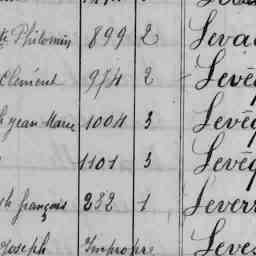 te Philomin 899 2 Leva
Clément 954 2 Levê
h jean Marie 1004 3 Levêq
1101 3 Levêq
ph françois 232 1 Leverr
Joseph Impropre Leves